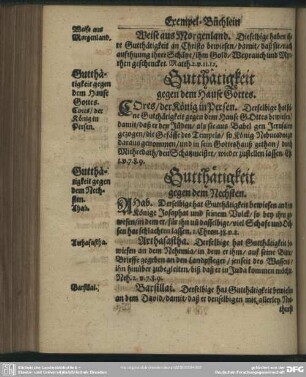 Exempel-Büchlein
Weise aus
Morgenland.
Weise aus Morgenland. Dieselbige haben ih-
re Gutthätigkeit an Christo bewiesen/ damit/ daß sie nach
auffthuung ihrer Schätze/ ihm Gold/ Weyrauch und Myr-
rhen geschencket. Matth. 2. v. 11. 12.
Gutthä-
tigkeit gegen
dem Hause
Gottes.
Gutthätigkeit
gegen dem Hause Gottes.
Cores/ der
König in
Persen.
Cores/ der König in Persen. Derselbige hat sei-
ne Gutthätigkeit gegen dem Hause Gottes bewiesen/
damit/ daß er den Jüden/ als sie aus Babel gen Jerusalem
gezogen/ die Gefäße des Tempels/ so König Nebucadnezar
daraus genommen/ und in sein Gotteshauß gethan/ durch
Mithredath/ den Schatzmeister/ wieder zustellen lassen.
1. v. 7. 8. 9.
Gutthä-
tigkeit gegen
dem Nech-
sten.
Gutthätigkeit
gegen dem Nechsten.
Ahab.
AHab. Derselbige hat Gutthätigkeit bewiesen an dem
Könige Josaphat und seinem Volck/ so bey ihm ge-
wesen/ in dem er/ für ihn und dasselbige/ viel Schafe und Och-
sen hat schlachten lassen. 2. Chron. 18. v. 2.
Arthasastha.
Arthasastha. Derselbige hat Gutthätigkeit be-
wiesen an dem Nehemia/ in dem er ihm/ auf seine Bitt/
Brieffe gegeben an den Landpfleger/ jenseit des Wassers/
ihn hinüber zubegleiten/ biß daß er in Juda kommen möchte.
Neh. 2. v. 7. 8. 9.
Barsillai.
Barsillai. Derselbige hat Gutthätigkeit bewiesen
an dem David/ damit/ daß er denselbigen mit allerley No-
thurft